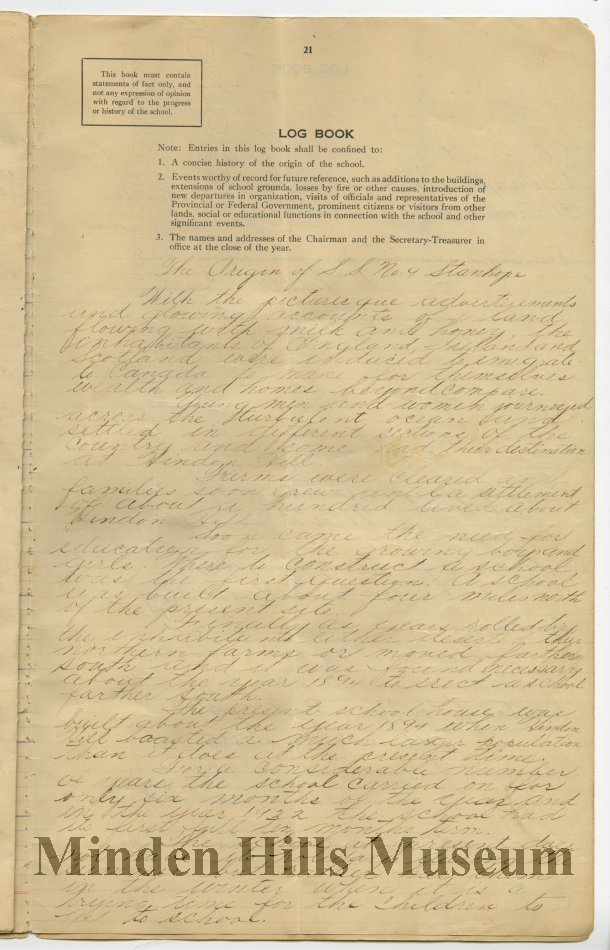 21
This book must contain
statements of fact only, and
not any expression of opinion
with regard to the progress
or history of the school.
LOG BOOK
Note: Entries in this log book shall be confined to:
1. A concise history of the origin of the school.
2. Events worthy of record for future reference, such as additions to the buildings,
extensions of school grounds, losses by fire or other causes, introduction of
new departures in organization, visits of officials and representatives of the
Provincial or Federal Government, prominent citizens or visitors from other
lands, social or educational functions in connection with the school and other
significant events.
3. The names and addresses of the Chairman and the Secretary-Treasurer in
office at the close of the year.
The Origin of S.S. No. 4 Stanhope
With the picturesque advertisements
and glowing accounts of a land
flowing with milk and honey the
inhabitants of England Ireland and
Scotland were induced to emigrate
to Canada to make for themselves
wealth and homes beyond compare.
Many men and women journeyed
across the turbulent ocean and
settled in different sections of the
country and some their destination
at Hindon Hill
Farms were cleared
families soon grew a settlement
of about a hundred lived about
Hindon Hill
Soon came the need for
education for the growing boys and
girls. Where to construct a school
was the first question. A school
was built about four miles north
of the present site.
Finally as years rolled by
the inhabitants either deserted their
northern farms or moved farther
south and it was found necessary
about the year 1894 to erect a school
farther south.
The present school house was
built about the year 1894 when Hindon
Hill boasted a much larger population
than it does at the present time.
For a considerable number
of years the school carried on for
only six months of the year and
in the year 1932 the school had
its first full ten months term.
in the winter when it is a
trying time for the children to
get to school.
Minden Hills Museum